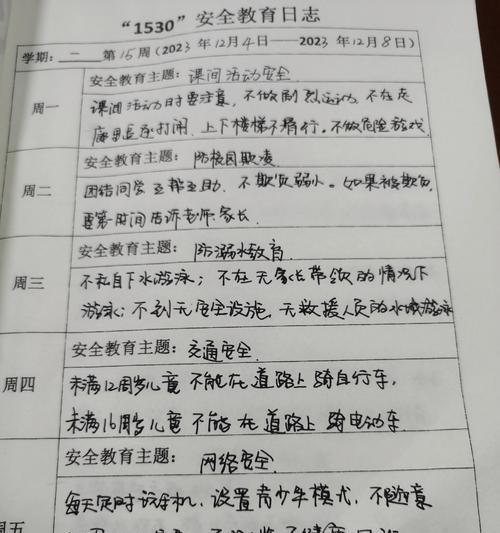 “1530”安全教育日志
学期：一 第15周（2023年12月4日——2023年12月8日）
安全教育主题：课间活动安全.
周一
课间活动时要注意，不做剧烈运动，不在走
廊里追逐打闹，上下楼梯不猾行。不做危险游戏.
安全教育主题：防校园欺凌
周二
团结同学互帮互助、不欺负弱小。如果被欺负，
要第一时间告诉老师、家长.
安全教育主题：防溺水教育
周三
不私自下水游泳；不在无家长带领的情况下
游泳；不到无安全设施、无救援人员的水域游泳
安全教育主题：交通安全.
周四
未满12周岁儿童不能在道路上骑自行车，
未满16周岁儿童不能在道路上骑电动车.
安全教育主题：网络安全.
周五
每天定时玩手机、设置青少年模式，不随意